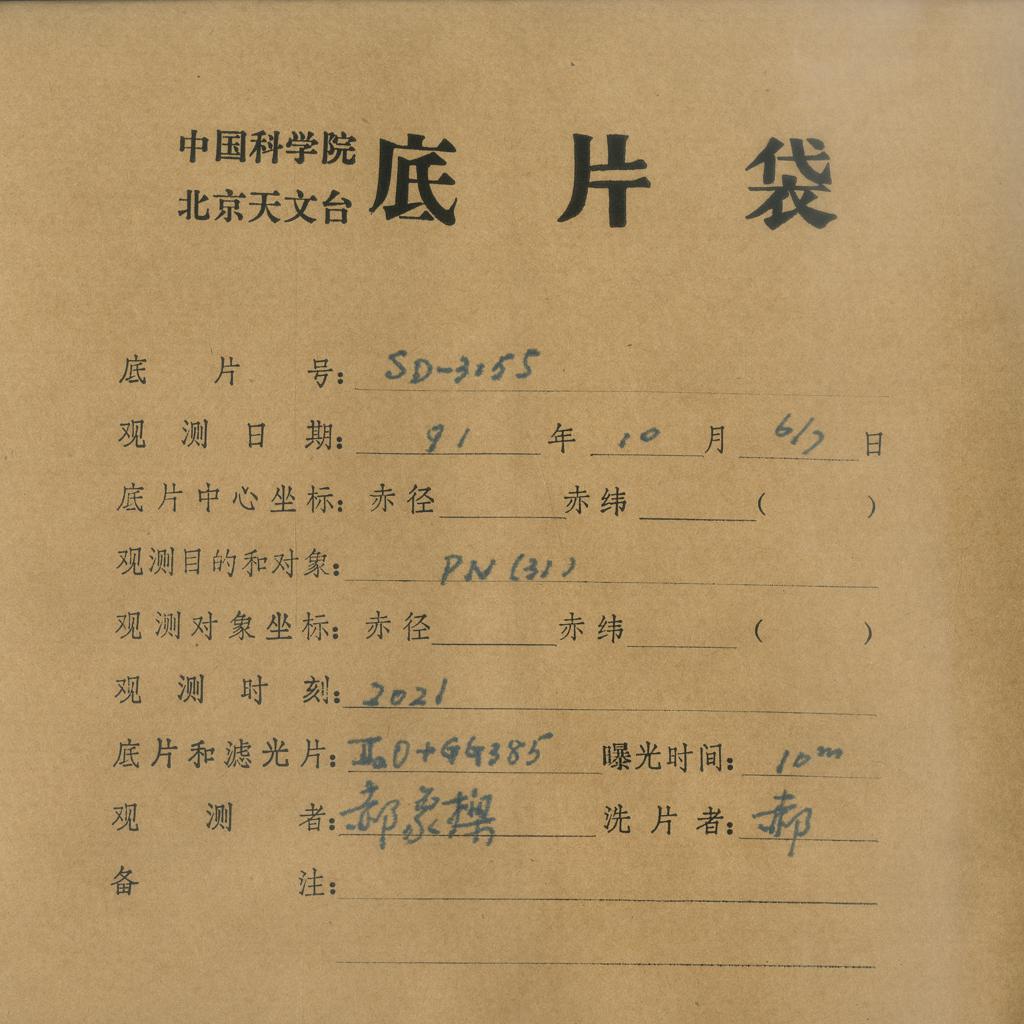 中国科学院
北京天文台
底片袋
底片号: SD-3155
观测日期: 91年10月6/7日
底片中心坐标: 赤径 赤纬 ( )
观测目的和对象: PN (31)
观测对象坐标: 赤径 赤纬 ( )
观测时刻: 2021
底片和滤光片: IIaO+GG385 曝光时间: 10m
观测者: 郝象樑 洗片者: 郝
备注: